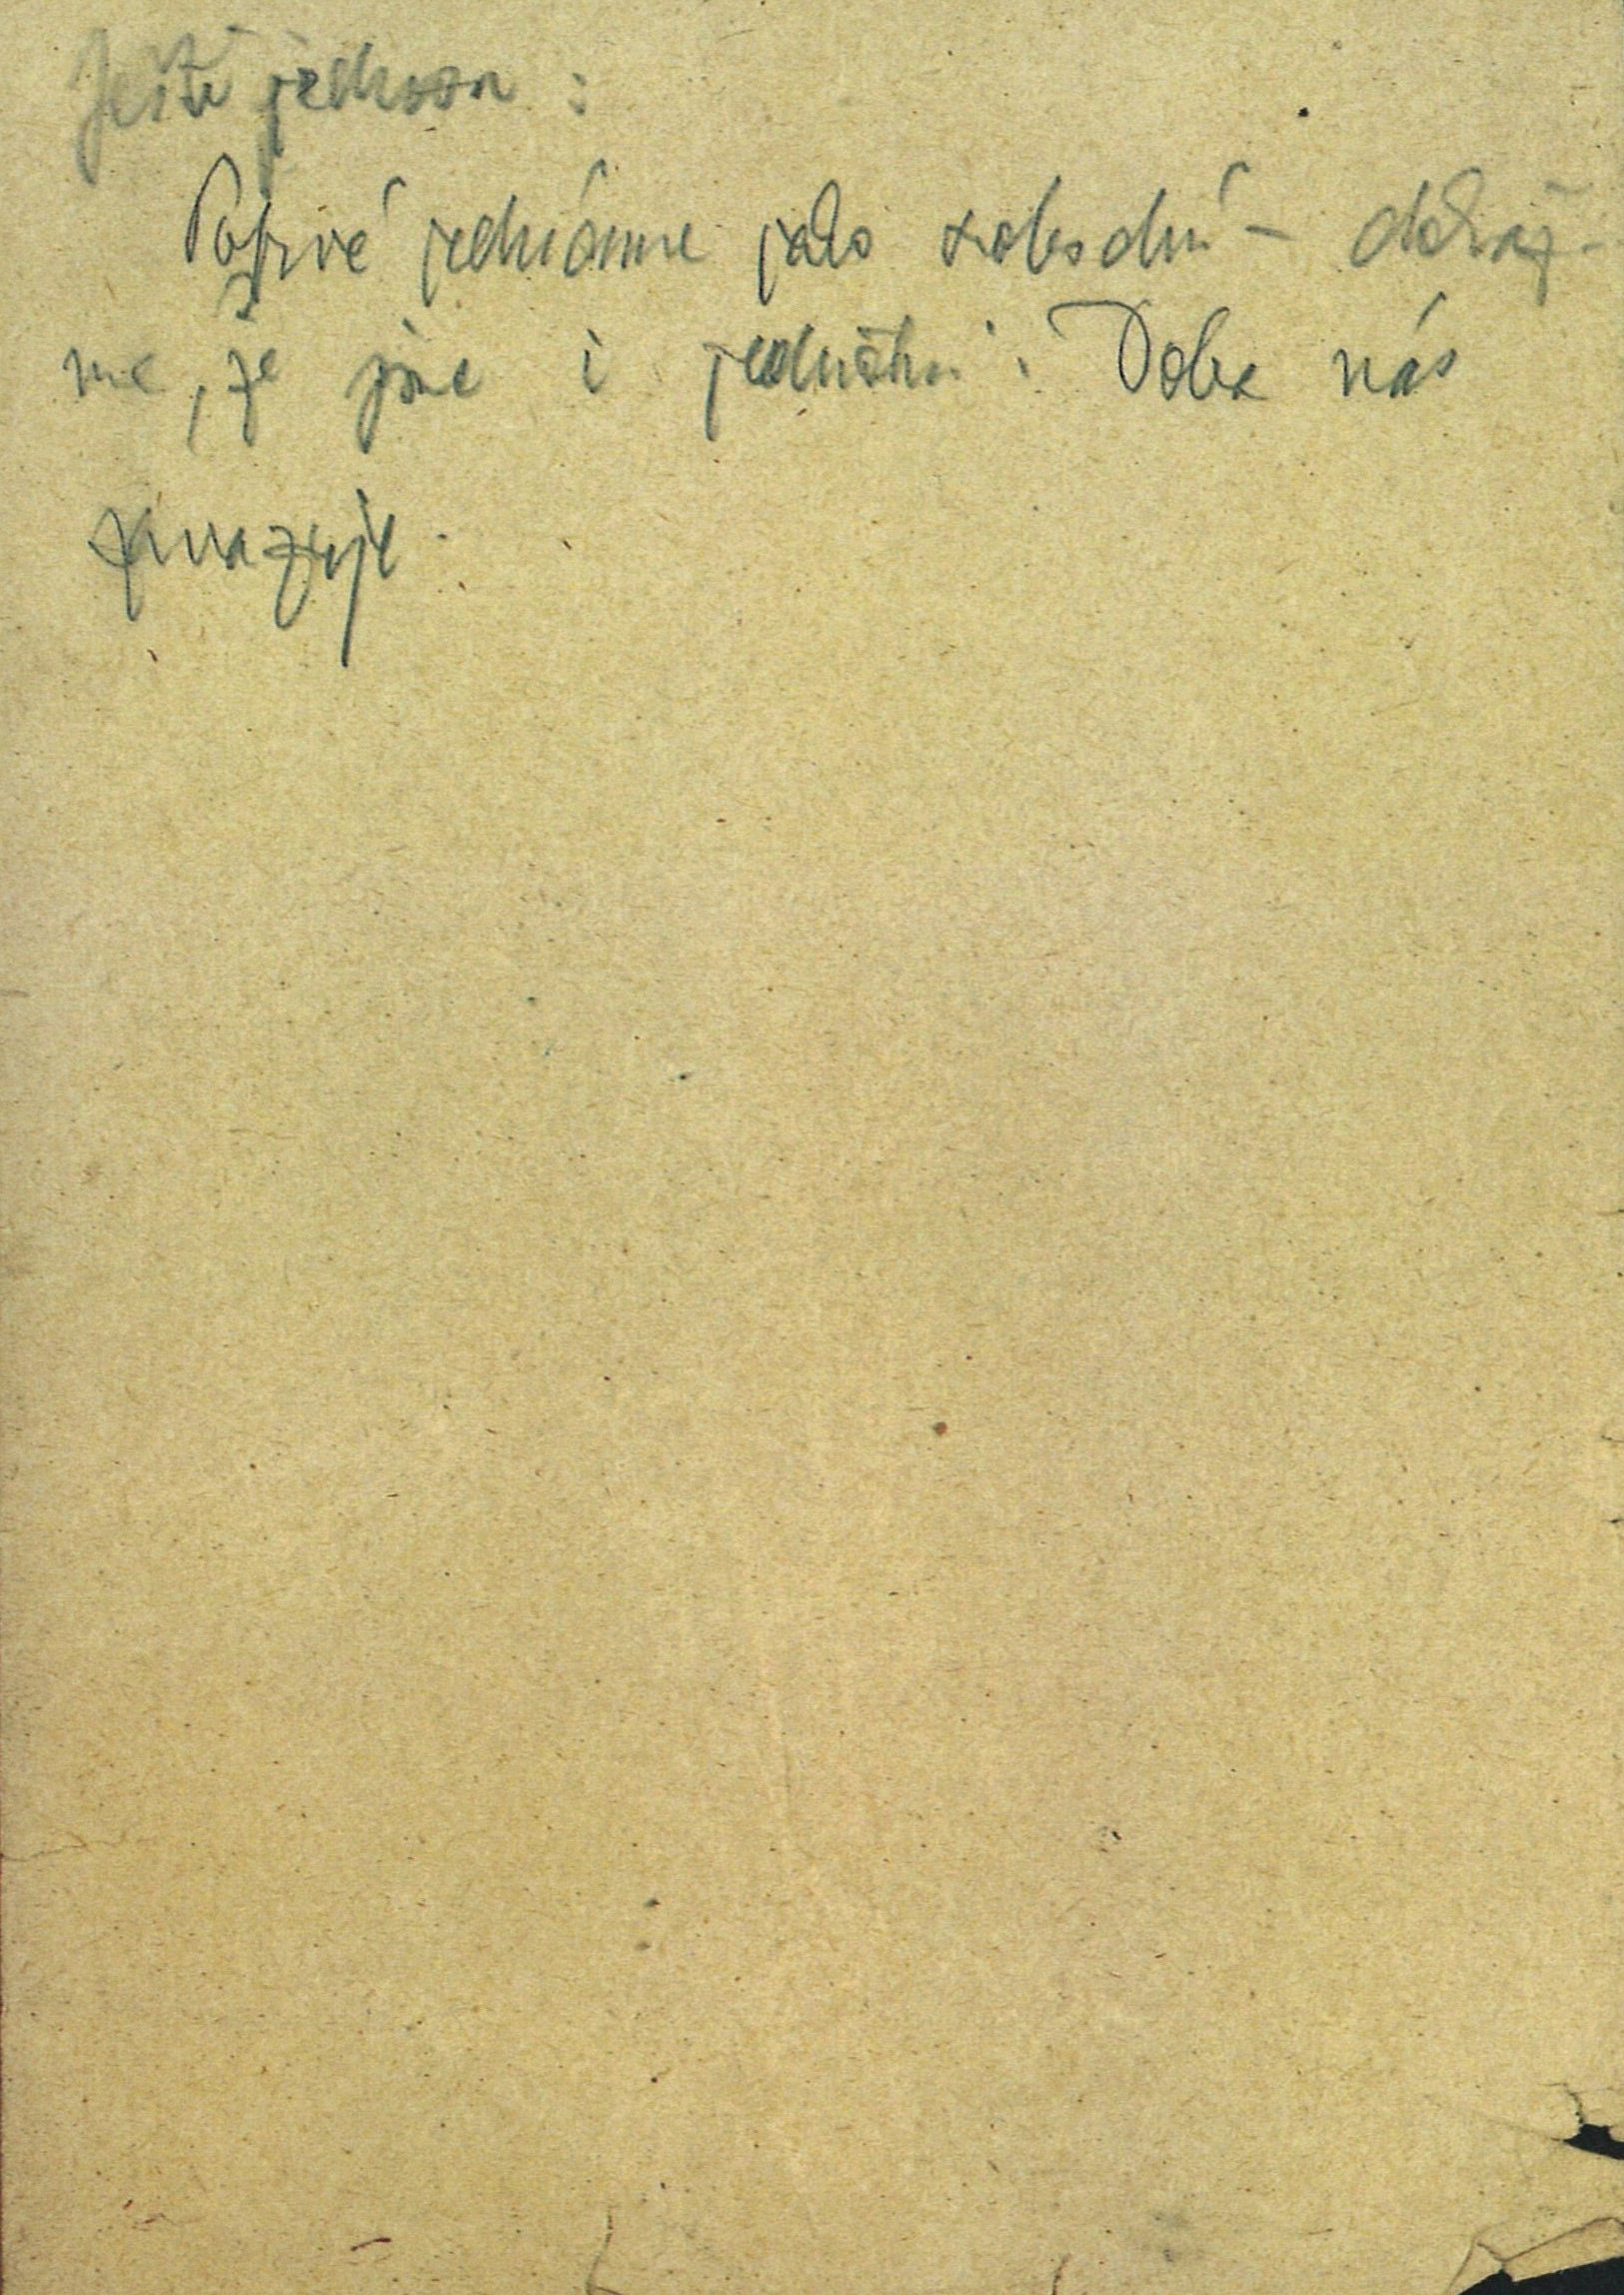 Ještě jednou :
Poprvé jednáme jako svobodní – dokaž-
me, že jsme i jednotní. Doba nás
zavazuje.